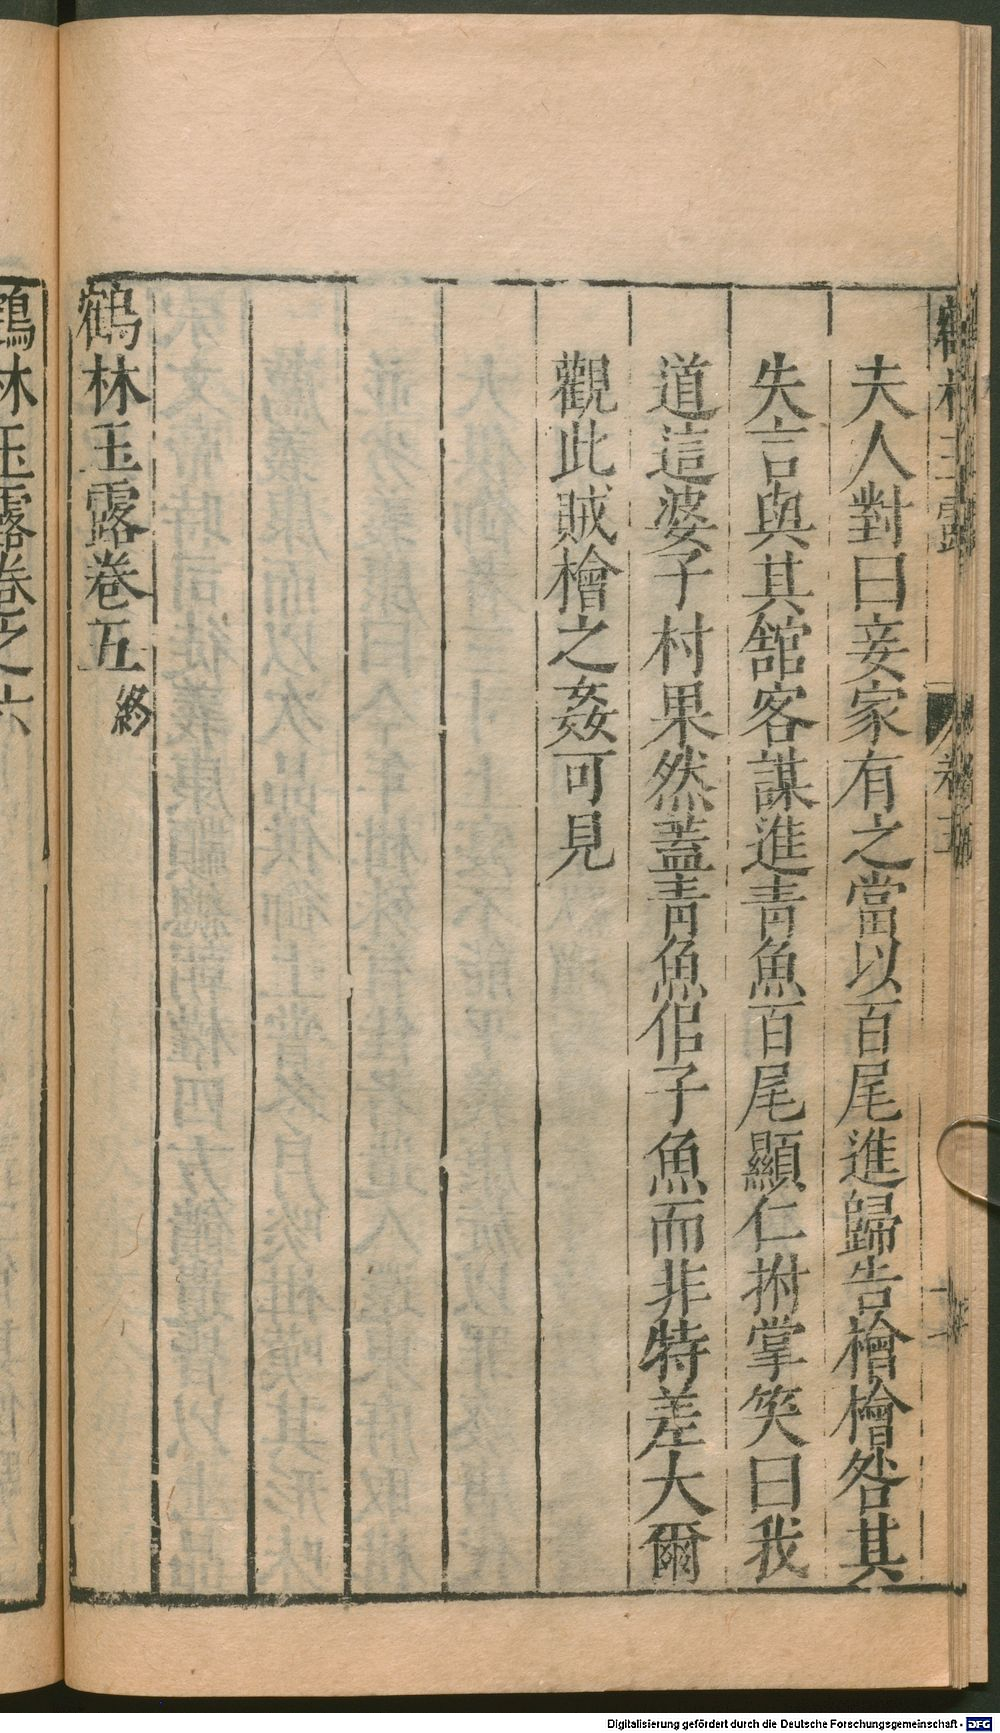 夫人對曰妾家有之當以百尾進歸告檜檜咎其
失言與其舘客謀進靑魚百尾顯仁拊掌笑曰我
道這婆子村果然蓋靑魚佀子魚而非特差大爾
觀此賊檜之姦可見
鶴林玉露卷五終
鶴林玉露卷之六
Digitalisierung gefördert durch die Deutsche Forschungsgemeinschaft - DFG